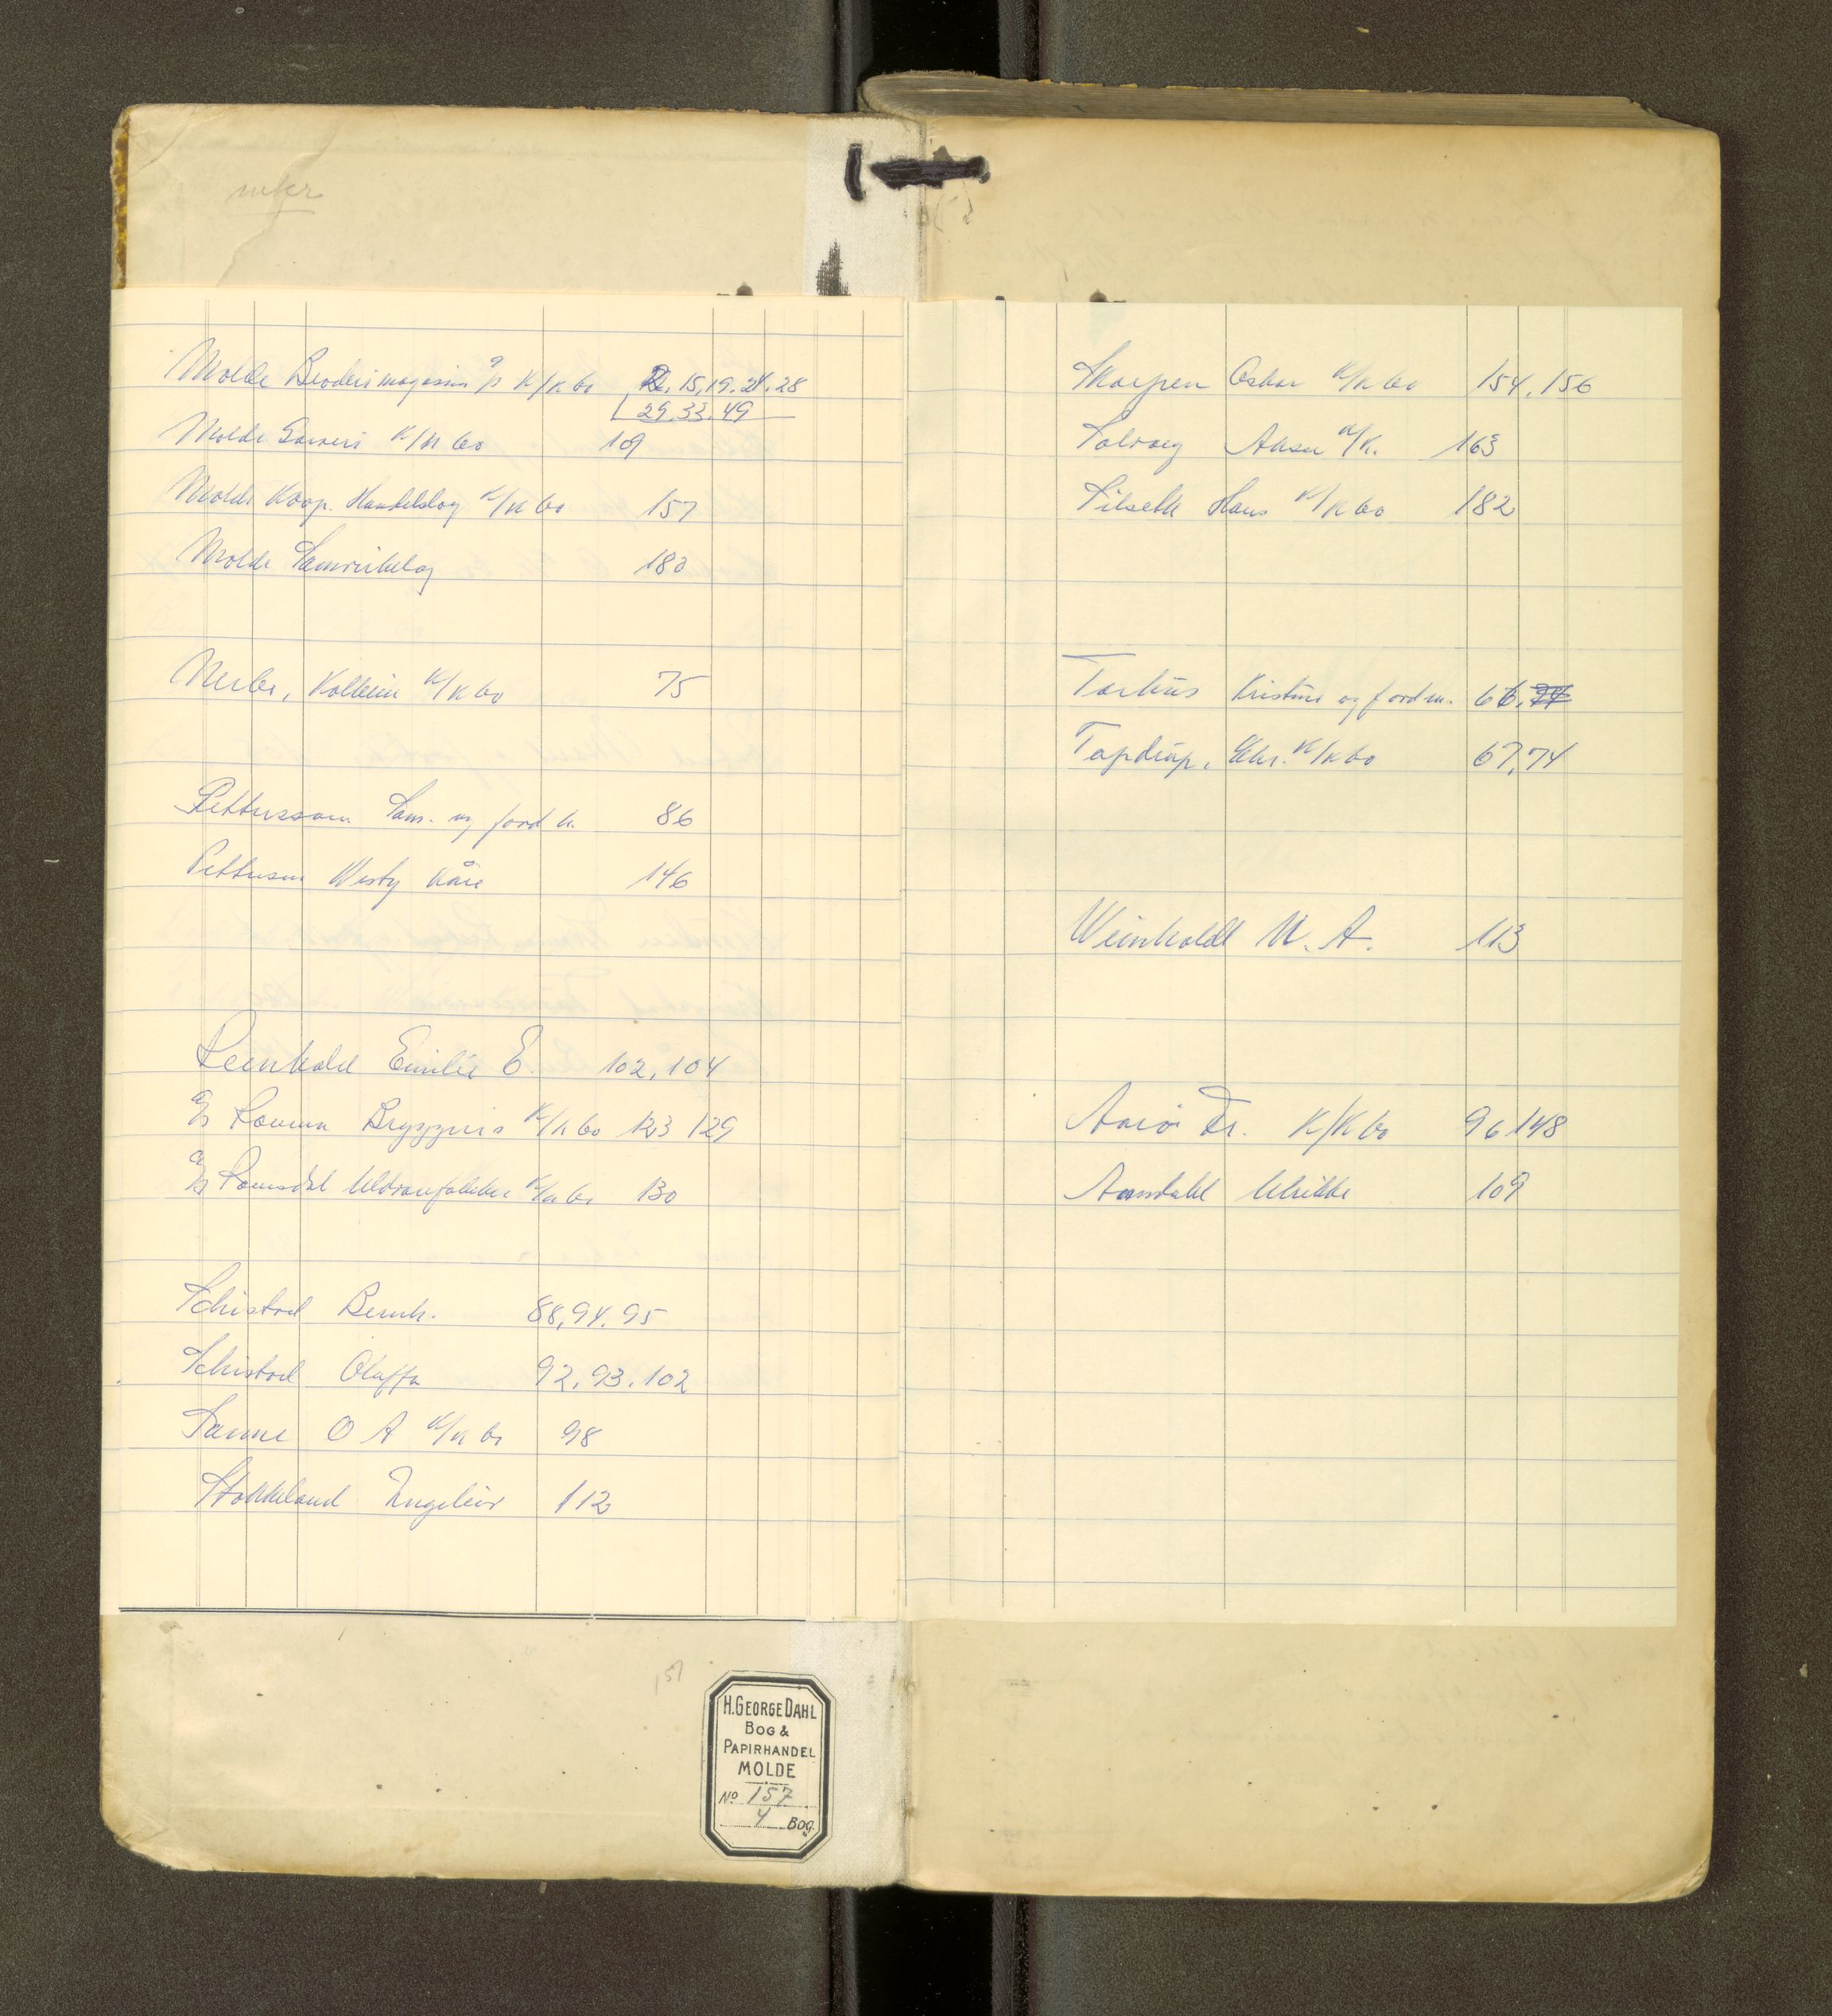 mkr
Molde Broderimagasin A/S K/K bo 12, 15, 19. 24. 28
29. 33. 49
Molde Garveri K/K bo 109
Molde Koop. Handelslag K/K bo 157
Molde Samvirkelag 180
Nerbø, Kolbein K/K bo 75
Pettersson Sam. og ford h. 86
Pettersen Westy Kåre 146
Reinhold Emilie E. 102, 104
A/S Rauma Bryggeri K/K bo 123 129
A/S Romsdal Uldvarefabrikk K/K bo 130
Schistad Bernh. 88, 94. 95
Schistad Olaffa 92. 93. 102
Sanne O A K/K bo 98
Stokkeland Ingebör 112
157
H. GEORGE DAHL
BOG &
PAPIRHANDEL
MOLDE
No 157
4 BOG.
Skarpen Oskar K/K bo 154. 156
Solvåg K/K. 163
Silseth Hans K/K bo 182
Tarhus Kristine og ford m. 66, 74
Tapdrup, Chr. K/K bo 67, 74
Weinholdt M. A. 113
Aarø Fr. K/K bo 96 148
Aandahl Ulrikke 109